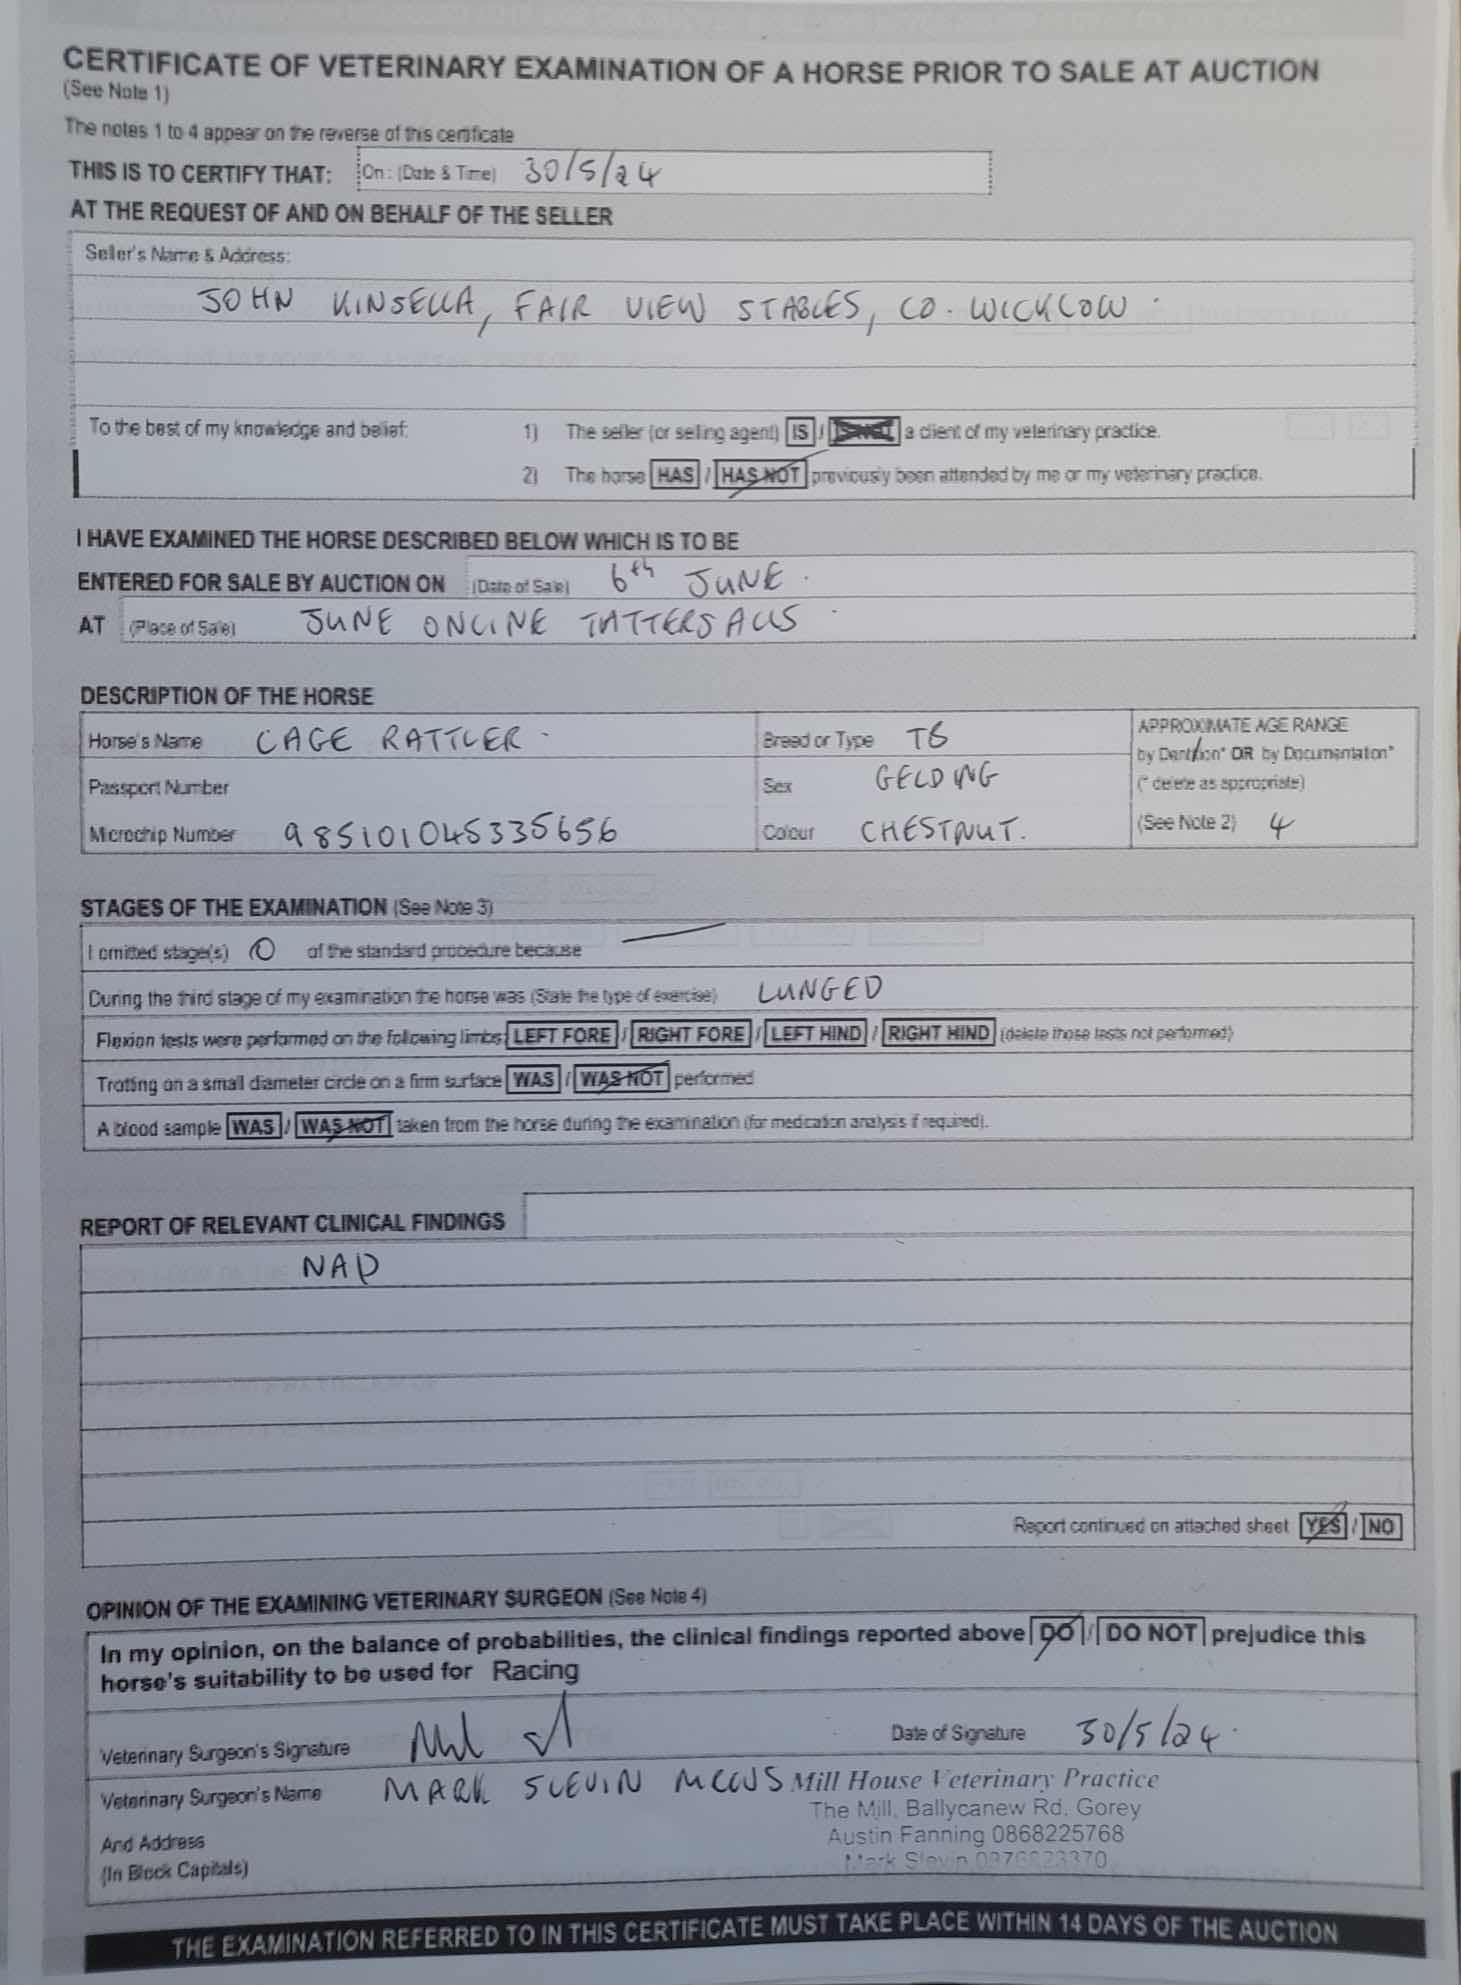 CERTIFICATE OF VETERINARY EXAMINATION OF A HORSE PRIOR TO SALE AT AUCTION
(See Note 1)
The notes 1 to 4 appear on the reverse of this certificate
THIS IS TO CERTIFY THAT: On: (Date & Time) 30/5/24
AT THE REQUEST OF AND ON BEHALF OF THE SELLER
Seller's Name & Address:
JOHN KINSELLA, FAIR VIEW STABLES, CO. WICKLOW.
To the best of my knowledge and belief: 1) The seller (or selling agent) IS / IS NOT a client of my veterinary practice.
2) The horse HAS / HAS NOT previously been attended by me or my veterinary practice.
I HAVE EXAMINED THE HORSE DESCRIBED BELOW WHICH IS TO BE
ENTERED FOR SALE BY AUCTION ON (Date of Sale) 6th JUNE.
AT (Place of Sale) JUNE ONLINE TATTERSALLS.
DESCRIPTION OF THE HORSE
Horse's Name CAGE RATTLER. Breed or Type TB APPROXIMATE AGE RANGE
by Dentition* OR by Documentation*
Passport Number Sex GELDING (* delete as appropriate)
Microchip Number 985101045335656 Colour CHESTNUT. (See Note 2) 4
STAGES OF THE EXAMINATION (See Note 3)
I omitted stage(s) 0 of the standard procedure because —
During the third stage of my examination the horse was (State the type of exercise) LUNGED
Flexion tests were performed on the following limbs LEFT FORE / RIGHT FORE / LEFT HIND / RIGHT HIND (delete those tests not performed)
Trotting on a small diameter circle on a firm surface WAS / WAS NOT performed
A blood sample WAS / WAS NOT taken from the horse during the examination (for medication analysis if required).
REPORT OF RELEVANT CLINICAL FINDINGS
NAD
Report continued on attached sheet YES / NO
OPINION OF THE EXAMINING VETERINARY SURGEON (See Note 4)
In my opinion, on the balance of probabilities, the clinical findings reported above DO / DO NOT prejudice this
horse's suitability to be used for Racing
Veterinary Surgeon's Signature Date of Signature 30/5/24.
Veterinary Surgeon's Name MARK SLEVIN Mill House Veterinary Practice
The Mill, Ballycanew Rd. Gorey
And Address Austin Fanning 0868225768
(In Block Capitals) Mark Slevin
THE EXAMINATION REFERRED TO IN THIS CERTIFICATE MUST TAKE PLACE WITHIN 14 DAYS OF THE AUCTION